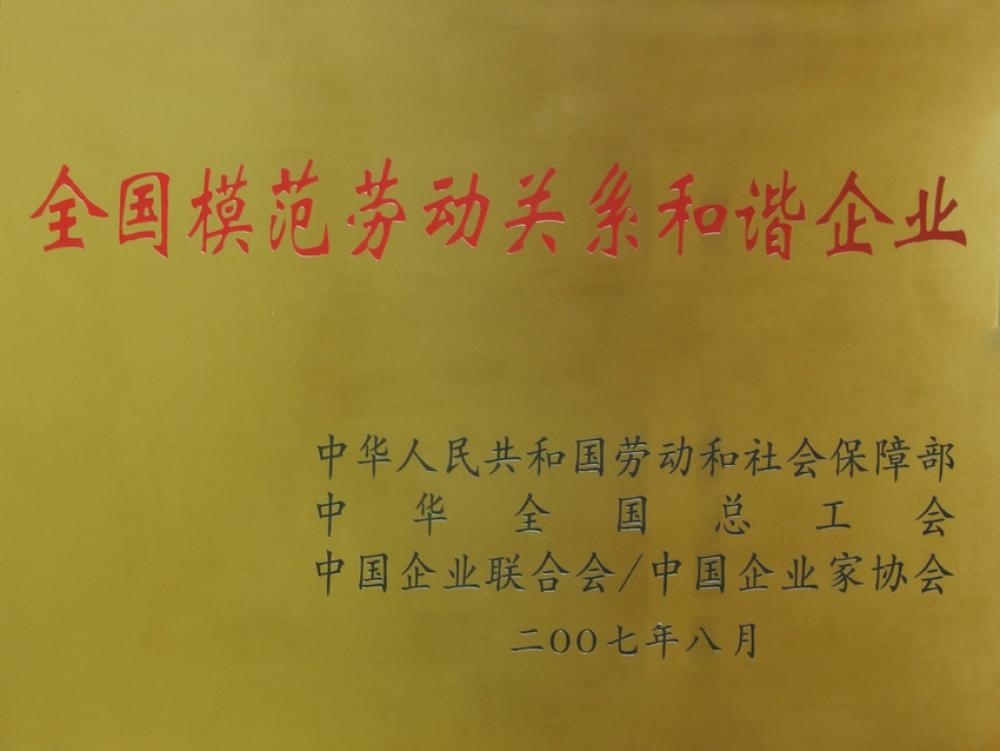 全国模范劳动关系和谐企业
中华人民共和国劳动和社会保障部
中华全国总工会
中国企业联合会/中国企业家协会
二OO七年八月